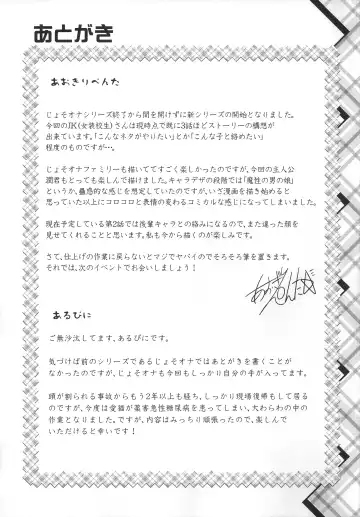 あとがき
あおきりぺんた
じょそオナシリーズ終了から間を開けずに新シリーズの開始となりました。
今回のJK(女装校生)さんは現時点で既に3話ほどストーリーの構想が
出来ています。「こんなネタがやりたい」とか「こんな子と絡めたい」
程度のものですが…
じょそオナファミリーも描いててすごく楽しかったのですが、今回の主人公
潤君もとっても楽しんで描けました。キャラデザの段階では「魔性の男の娘」
というか、蠱惑的な感じを想定していたのですが、いざ漫画を描き始めると
思っていた以上にコロコロと表情の変わるコミカルな感じになってしまいました。
現在予定している第2話では後輩キャラとの絡みになるので、また違った顔を
見せてくれることと思います。私も今から描くのが楽しみです。
さて、仕上げの作業に戻らないとマジでヤバイのでそろそろ筆を置きます。
それでは、次のイベントでお会いしましょう!
あるぴに
ご無沙汰してます、あるぴにです。
気づけば前のシリーズであるじょそオナではあとがきを書くことが
なかったのですが、じょそオナも今回もしっかり自分の手が入ってます。
頭が割られる事故からもう2年以上も経ち、しっかり現場復帰もして居る
のですが、今度は愛猫が薬害急性糖尿病を患ってしまい、大わらわの中の
作業となりました。ですが、内容はみっちり頑張ったので、楽しんで
いただけると幸いです!